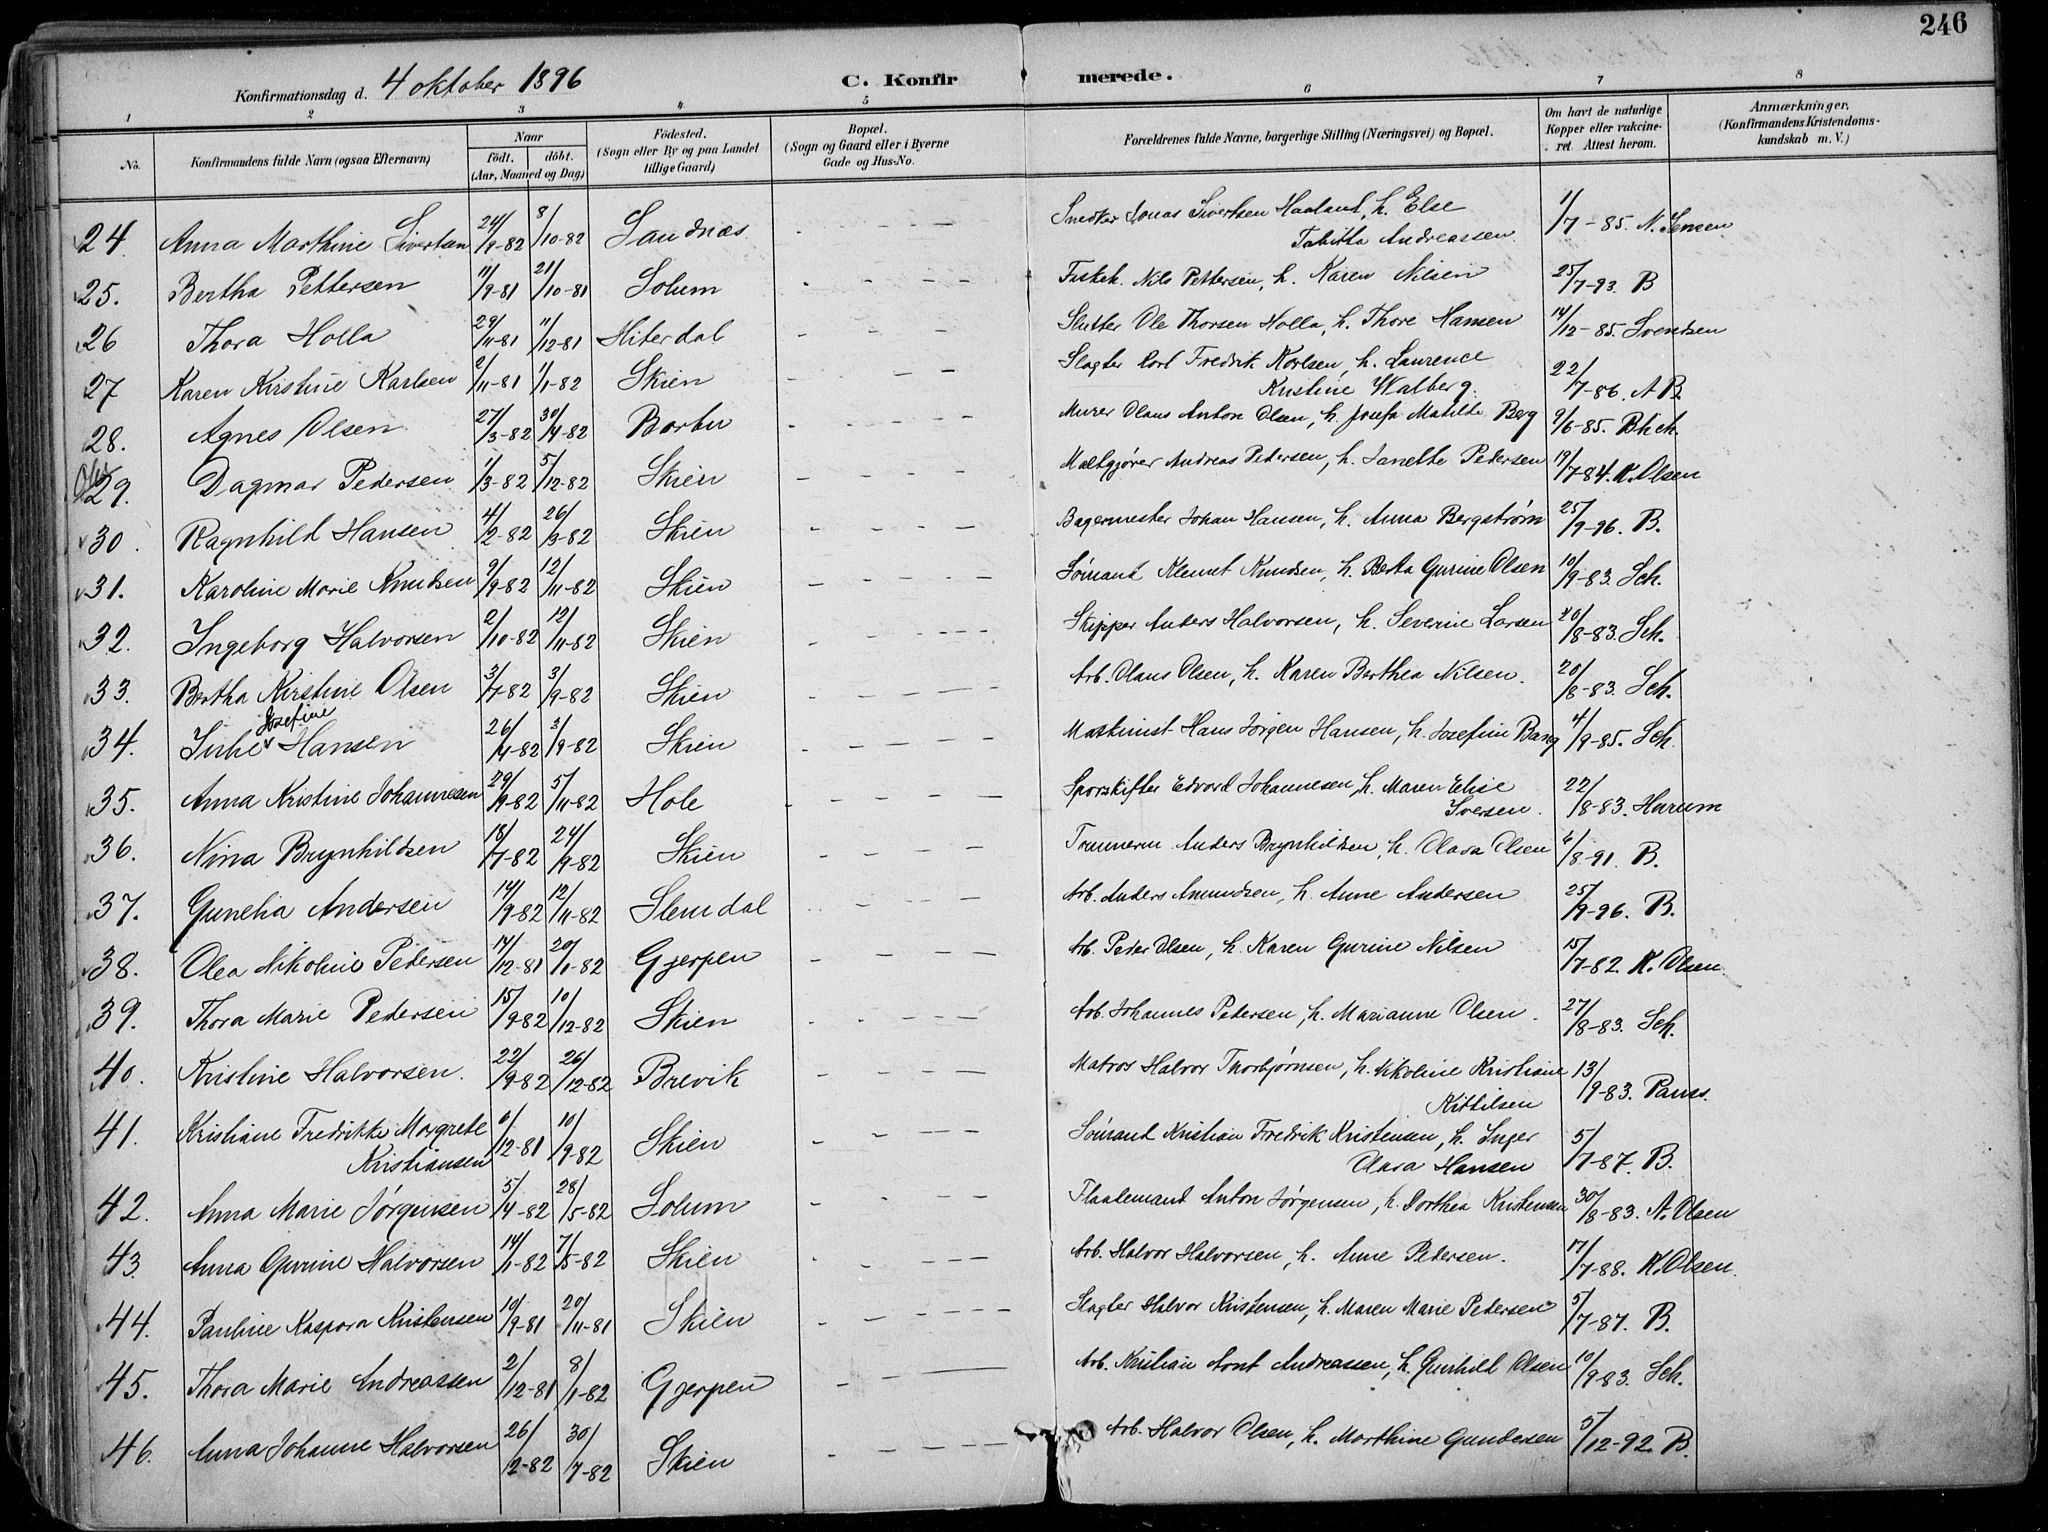 246
Konfirmationsdag d. 4 oktober 1896
C. Konfirmerede.
1 2 3 4 5 6 7 8
No.
Konfirmandens fulde Navn (ogsaa Efternavn)
Naar
födt. döbt.
(Aar, Maaned og Dag)
Födested.
(Sogn eller By og paa Landet
tillige Gaard)
Bopæl.
(Sogn og Gaard eller i Byerne
Gade og Hus-No.
Forældrenes fulde Navne, borgerlige Stilling (Næringsvei) og Bopæl.
Om havt de naturlige
Kopper eller vakcine-
ret. Attest herom.
Anmærkninger.
(Konfirmandens Kristendoms-
kundskab m. V.)
24. Anna Marthine Sivertsen 24/9-82 8/10-82 Sandnæs. Snedker Jonas Sivertsen Haaland, h. Else 1/7-85. N. Jensen
Tabitta Andreassen.
25. Bertha Pettersen 11/9-81 21/10-81 Solum Fiskeh. Nils Pettersen, h. Karen Nilsen 25/7-93. B
26 Thora Holla 29/11-81 11/12-81 Hiterdal Slutter Ole Thorsen Holla, h. Thore Hansen 14/12-85. Svendsen
27 Karen Kristine Karlsen 2/11-81 1/1-82 Skien Slagter Carl Fredrik Karlsen, h. Laurence 22/7-86. A B
Kristine Walberg.
28. Agnes Olsen 27/3-82 30/4-82 Barbu Murer Olaus Anton Olsen, h. Josefa Matilde Berg 9/6-85. Blich.
29. Dagmar Pedersen 1/3-82 5/12-82 Skien Maltgjører Andreas Pedersen, h. Janette Pedersen 19/7-84. K. Olsen
30. Ragnhild Hansen 4/2-82 26/3-82 Skien Bagermester Johan Hansen, h. Anna Bergstrøm 25/9-96. B.
31. Karoline Marie Knudsen 9/9-82 12/11-82 Skien Sømand Klemet Knudsen, h. Berta Gurine Olsen 10/9-83. Sch.
32. Ingeborg Halvorsen 2/10-82 12/11-82 Skien Skipper Anders Halvorsen, h. Severine Larsen 20/8-83. Sch.
33. Bertha Kirstine Olsen 3/7-82 3/9-82 Skien Arb. Olaus Olsen, h. Karen Berthea Nilsen. 20/8-83. Sch.
Josefine
34. Hansen 26/4-82 3/9-82 Skien Maskinist Hans Jørgen Hansen, h. Josefine Bang 4/9-85. Sch.
35. Anna Kristine Johannesen 29/9-82 5/11-82 Hole Sporskifter Edvard Johannesen, h. Maren Elise 22/8-83. Harum
Iversen.
36. Nina Brynhildsen 18/7-82 24/9-82 Skien Tømmerm. Anders Brynhildsen, h. Clara Olsen 6/8-91. B.
37. Gunelia Andersen 14/9-82 12/11-82 Slemdal Arb. Anders Amundsen, h. Anne Andersen 25/9-96. B.
38. Olea Nikoline Pedersen 14/12-81 20/1-82 Gjerpen Arb. Peder Olsen, h. Karen Gurine Nilsen 15/7-82. K. Olsen.
39. Thora Marie Pedersen 15/9-82 10/12-82 Skien Arb. Johannes Petersen, h. Marianne Olsen. 27/8-83. Sch.
40. Kristine Halvorsen. 22/9-82 26/12-82 Brevik Matros Halvor Thorbjørnsen, h. Nikoline Kristiane 13/9-83. Pauss.
Kittilsen
41. Kristiane Fredrikke Margrete 6/12-81 10/9-82 Skien Sømand Kristian Fredrik Kristensen, h. Inger 5/7-87. B.
Kristiansen Clara Hansen
42. Anna Marie Jørgensen 5/4-82 28/5-82 Solum Flaatemand Anton Jørgensen, h. Dorthea Kristensen 30/8-83. A. Olsen
43. Anna Gurine Halvorsen 14/1-82 7/5-82 Skien Arb. Halvor Halvorsen, h. Anne Pedersen. 17/7-88. K. Olsen.
44. Pauline Kaspara Kristensen 10/9-81 20/11-81 Skien Slagter Halvor Kristensen, h. Maren Marie Pedersen 5/7-87. B.
45. Thora Marie Andreassen 2/12-81 8/1-82 Gjerpen Arb. Kristian Arnt Andreassen, h. Gunhild Olsen 10/9-83. Sch.
46. Anna Johanne Halvorsen 26/2-82 30/7-82 Skien Arb. Halvor Olsen, h. Marthine Gundersen 5/12-92 B.